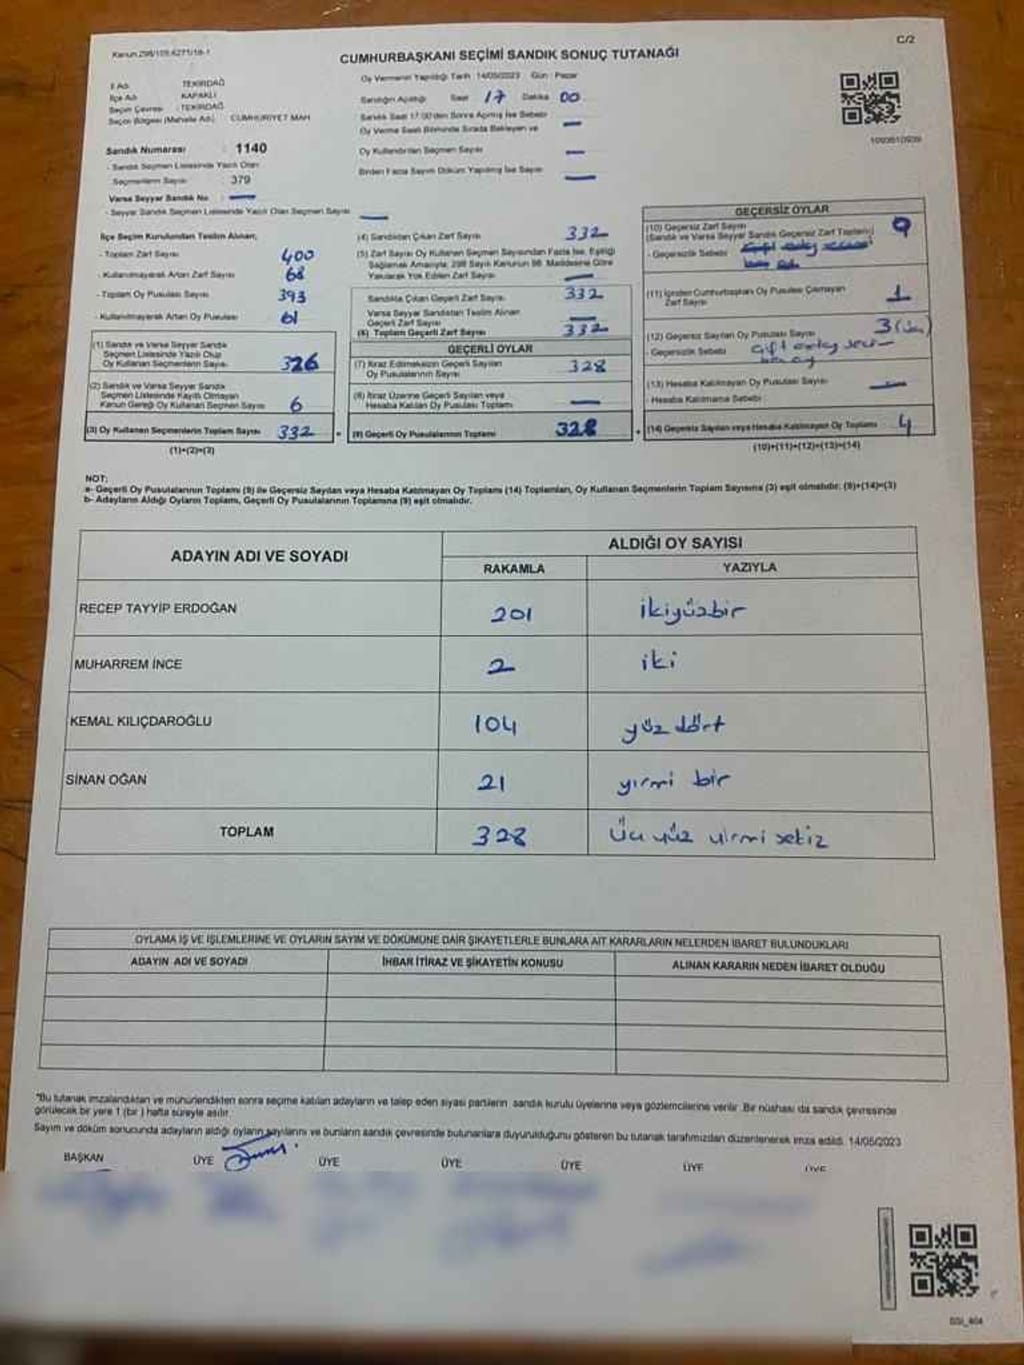 Kanun 298/105 6271/18-1
C/2
CUMHURBAŞKANI SEÇİMİ SANDIK SONUÇ TUTANAĞI
İl Adı TEKİRDAĞ
İlçe Adı KAPAKLI
Seçim Çevresi : TEKİRDAĞ
Seçim Bölgesi (Mahalle Adı) CUMHURİYET MAH
Sandık Numarası : 1140
- Sandık Seçmen Listesinde Yazılı Olan
Seçmenlerin Sayısı 379
Varsa Seyyar Sandık No : —
- Seyyar Sandık Seçmen Listesinde Yazılı Olan Seçmen Sayısı —
Oy Vermenin Yapıldığı Tarih 14/05/2023 Gün : Pazar
Sandığın Açıldığı Saat 17 Dakika 00
Sandık Saat 17:00'den Sonra Açılmış İse Sebebi
Oy Verme Saati Bitiminde Sırada Bekleyen ve —
Oy Kullandırılan Seçmen Sayısı —
Birden Fazla Sayım Döküm Yapılmış İse Sayısı —
İlçe Seçim Kurulundan Teslim Alınan;
- Toplam Zarf Sayısı 400
- Kullanılmayarak Artan Zarf Sayısı 68
- Toplam Oy Pusulası Sayısı 393
- Kullanılmayarak Artan Oy Pusulası 61
(1) Sandık ve Varsa Seyyar Sandık
Seçmen Listesinde Yazılı Olup
Oy Kullanan Seçmenlerin Sayısı 326
(2) Sandık ve Varsa Seyyar Sandık
Seçmen Listesinde Kayıtlı Olmayan
Kanun Gereği Oy Kullanan Seçmen Sayısı 6
(3) Oy Kullanan Seçmenlerin Toplam Sayısı 332
(1)+(2)=(3)
(4) Sandıktan Çıkan Zarf Sayısı 332
(5) Zarf Sayısı Oy Kullanan Seçmen Sayısından Fazla İse, Eşitliği
Sağlamak Amacıyla, 298 Sayılı Kanunun 98. Maddesine Göre
Yakılarak Yok Edilen Zarf Sayısı —
Sandıkta Çıkan Geçerli Zarf Sayısı 332
Varsa Seyyar Sandıktan Teslim Alınan
Geçerli Zarf Sayısı
(6) Toplam Geçerli Zarf Sayısı 332
GEÇERLİ OYLAR
(7) İtiraz Edilmeksizin Geçerli Sayılan
Oy Pusulalarının Sayısı 328
(8) İtiraz Üzerine Geçerli Sayılan veya
Hesaba Katılan Oy Pusulası Toplamı —
(9) Geçerli Oy Pusulalarının Toplamı 328
GEÇERSİZ OYLAR
(10) Geçersiz Zarf Sayısı
(Sandık ve Varsa Seyyar Sandık Geçersiz Zarf Toplamı)
- Geçersizlik Sebebi
(11) İçinden Cumhurbaşkanı Oy Pusulası Çıkmayan
Zarf Sayısı 1
(12) Geçersiz Sayılan Oy Pusulası Sayısı 3
- Geçersizlik Sebebi
(13) Hesaba Katılmayan Oy Pusulası Sayısı —
- Hesaba Katılmama Sebebi
(14) Geçersiz Sayılan veya Hesaba Katılmayan Oy Toplamı 4
(10)+(11)+(12)+(13)=(14)
NOT:
a- Geçerli Oy Pusulalarının Toplamı (9) ile Geçersiz Sayılan veya Hesaba Katılmayan Oy Toplamı (14) Toplamları, Oy Kullanan Seçmenlerin Toplam Sayısına (3) eşit olmalıdır. (9)+(14)=(3)
b- Adayların Aldığı Oyların Toplamı, Geçerli Oy Pusulalarının Toplamına (9) eşit olmalıdır.
ADAYIN ADI VE SOYADI
ALDIĞI OY SAYISI
RAKAMLA YAZIYLA
RECEP TAYYİP ERDOĞAN 201 ikiyüzbir
MUHARREM İNCE 2 iki
KEMAL KILIÇDAROĞLU 104 yüz dört
SİNAN OĞAN 21 yirmi bir
TOPLAM 328 Üç yüz yirmi sekiz
OYLAMA İŞ VE İŞLEMLERİNE VE OYLARIN SAYIM VE DÖKÜMÜNE DAİR ŞİKAYETLERLE BUNLARA AİT KARARLARIN NELERDEN İBARET BULUNDUKLARI
ADAYIN ADI VE SOYADI İHBAR İTİRAZ VE ŞİKAYETİN KONUSU ALINAN KARARIN NEDEN İBARET OLDUĞU
"Bu tutanak imzalandıktan ve mühürlendikten sonra seçime katılan adayların ve talep eden siyasi partilerin sandık kurulu üyelerine veya gözlemcilerine verilir. Bir nüshası da sandık çevresinde
görülecek bir yere 1 (bir ) hafta süreyle asılır.
Sayım ve döküm sonucunda adayların aldığı oyların sayılarını ve bunların sandık çevresinde bulunanlara duyurulduğunu gösteren bu tutanak tarafımızdan düzenlenerek imza edildi. 14/05/2023
BAŞKAN ÜYE ÜYE ÜYE ÜYE ÜYE ÜYE